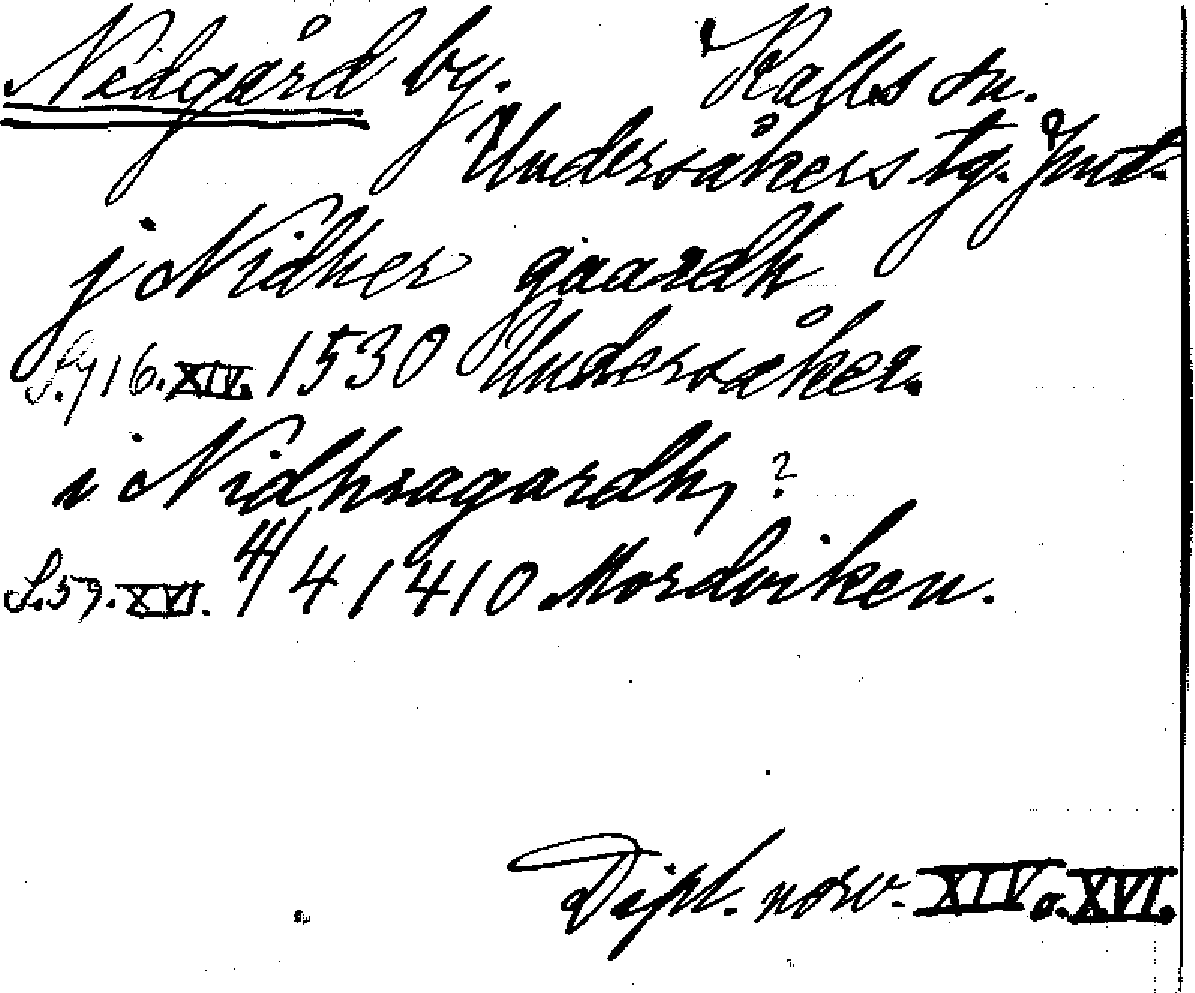 Nedgård by. Kalls sn.
Undersåkers tg. Jmt.
j Nidher gaardh
S. 716. XIV. 1530 Undersåker.
i Nidhragardh, ?
S. 59. XVI. 4/4 1410 Mordviken.
Dipl. norv. XIV o. XVI.